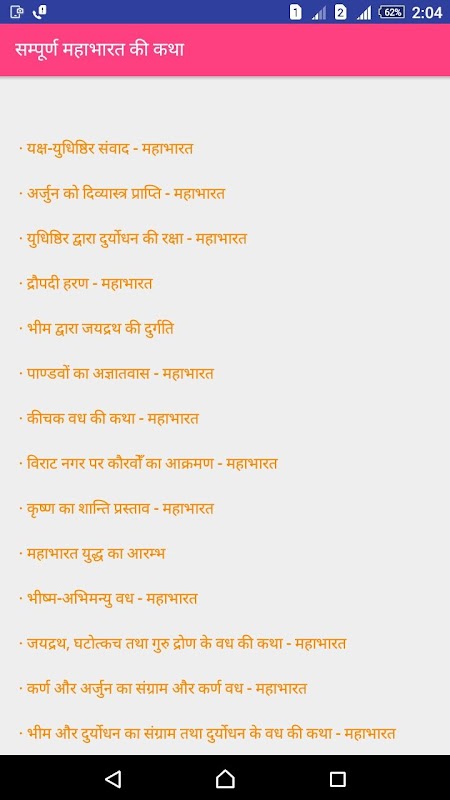 1 2 62% 2:04
सम्पूर्ण महाभारत की कथा
· यक्ष-युधिष्ठिर संवाद - महाभारत
· अर्जुन को दिव्यास्त्र प्राप्ति - महाभारत
· युधिष्ठिर द्वारा दुर्योधन की रक्षा - महाभारत
· द्रौपदी हरण - महाभारत
· भीम द्वारा जयद्रथ की दुर्गति
· पाण्डवों का अज्ञातवास - महाभारत
· कीचक वध की कथा - महाभारत
· विराट नगर पर कौरवोँ का आक्रमण - महाभारत
· कृष्ण का शान्ति प्रस्ताव - महाभारत
· महाभारत युद्ध का आरम्भ
· भीष्म-अभिमन्यु वध - महाभारत
· जयद्रथ, घटोत्कच तथा गुरु द्रोण के वध की कथा - महाभारत
· कर्ण और अर्जुन का संग्राम और कर्ण वध - महाभारत
· भीम और दुर्योधन का संग्राम तथा दुर्योधन के वध की कथा - महाभारत